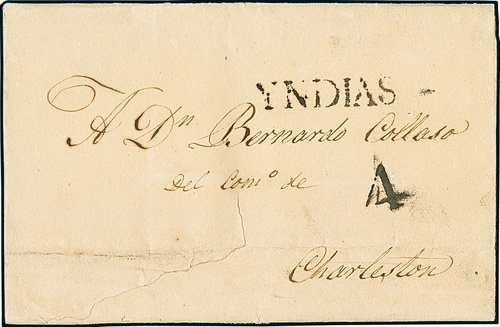 YNDIAS
A Dn. Bernardo Collaso
Del Como. de
4
Charleston